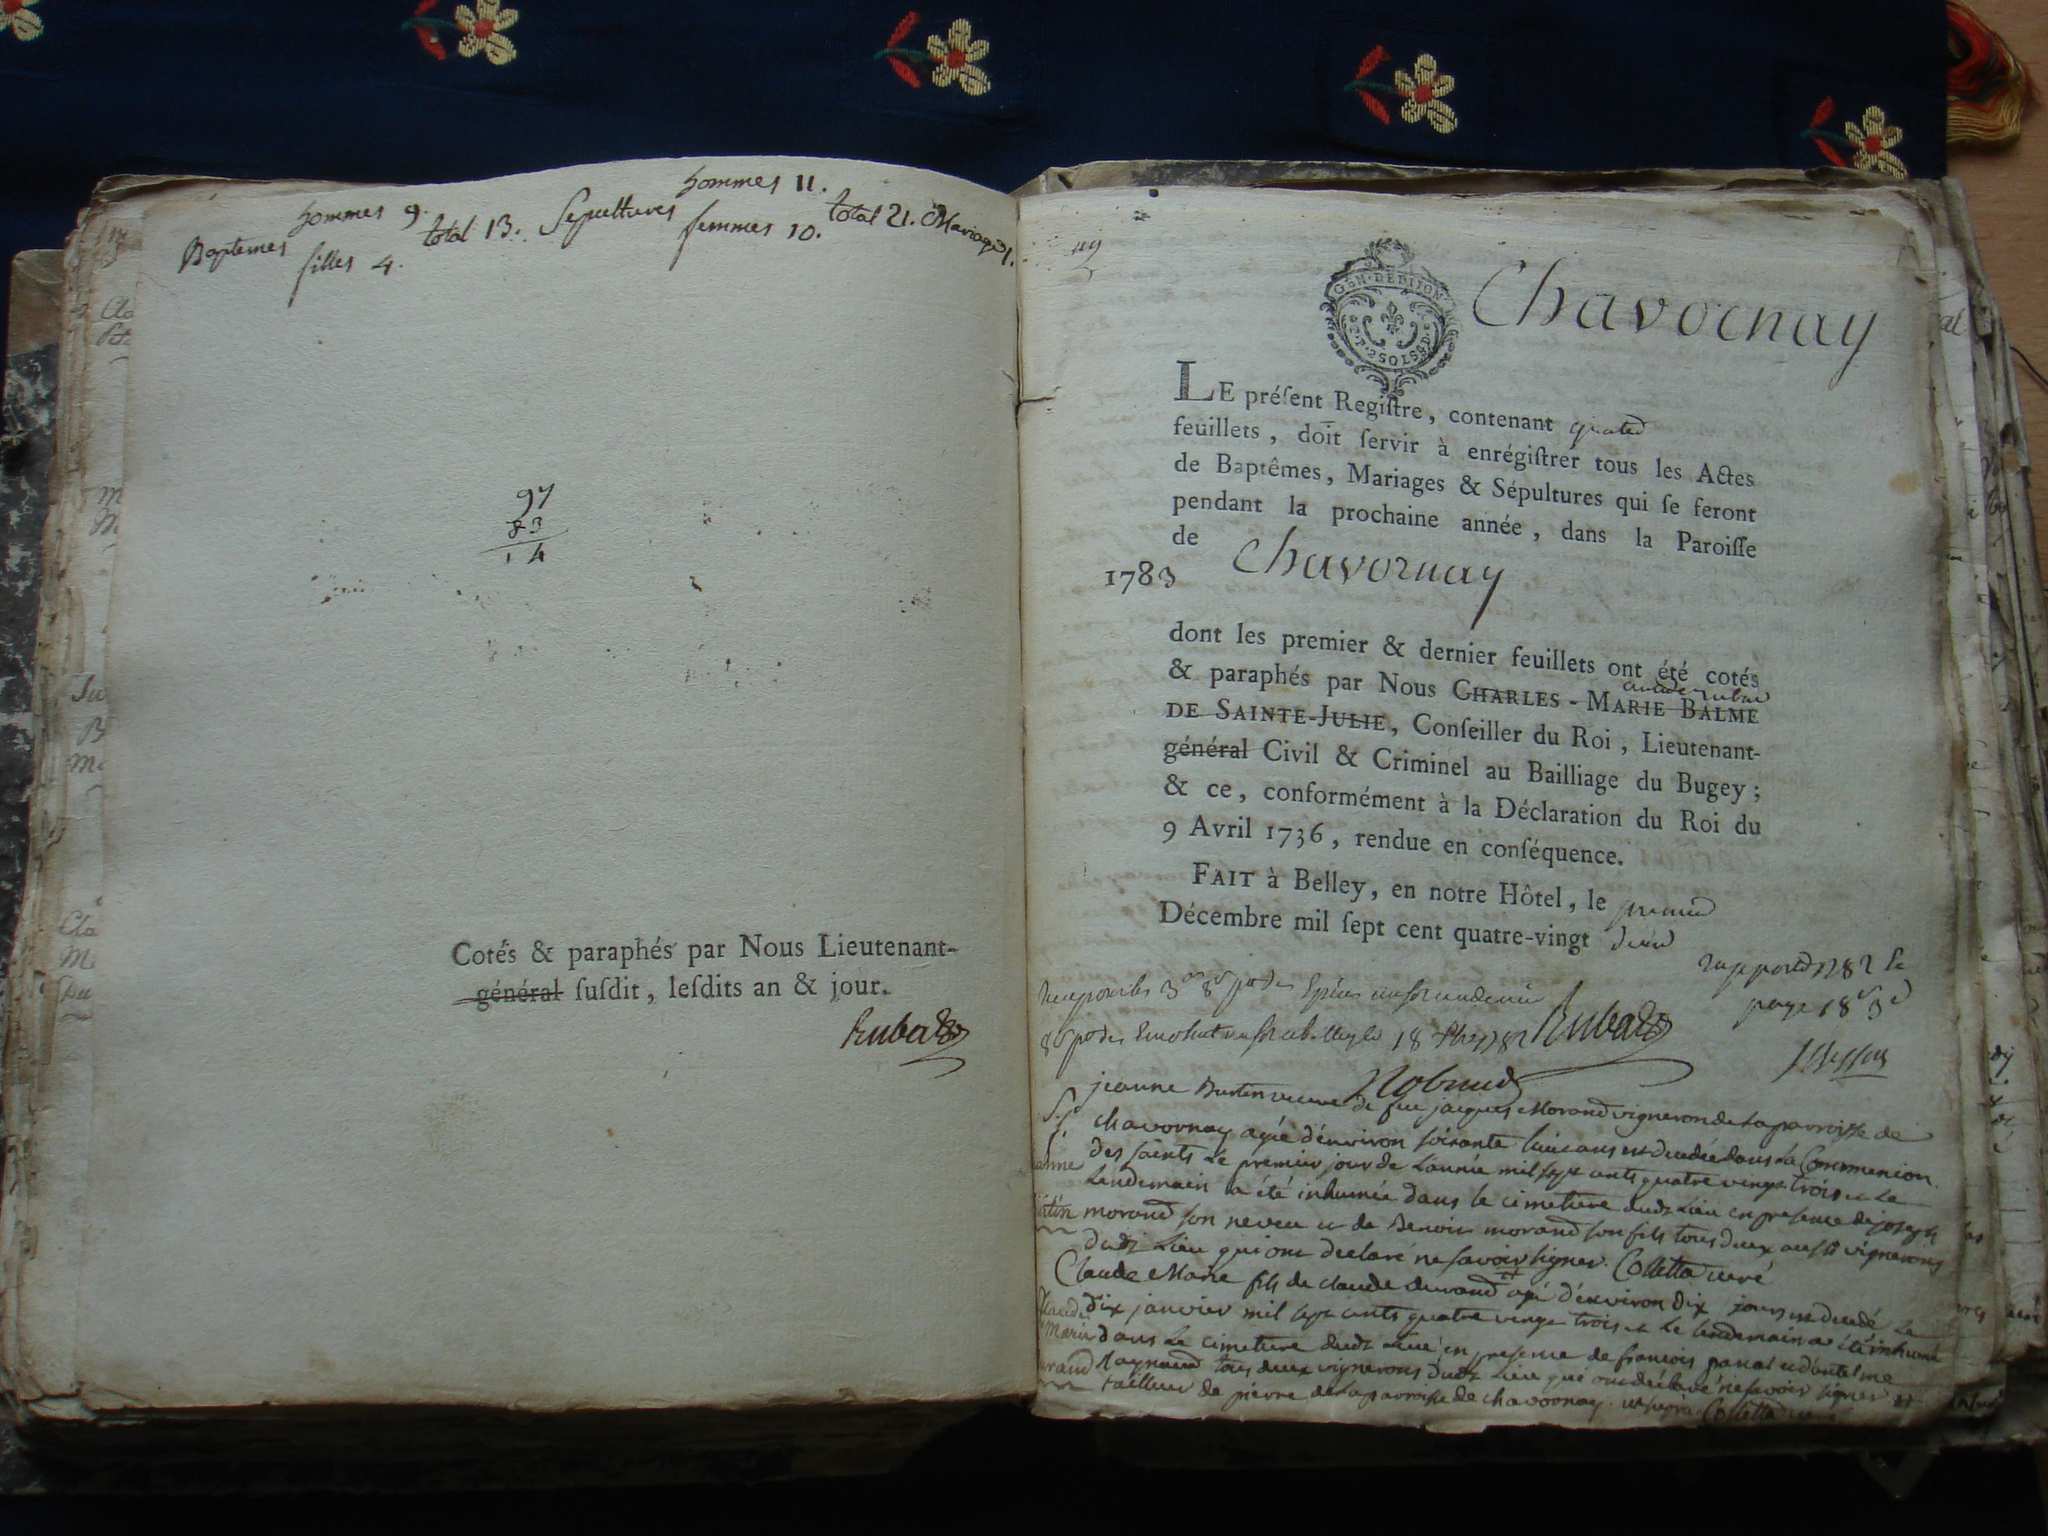 hommes 9. hommes 11.
Baptemes total 13. Sepultures total 21. Mariage 1.
filles 4. femmes 10.
97
83
14
Cotés & paraphés par Nous Lieutenant-
général ſuſdit, leſdits an & jour.
Rubat
GEN · DE DIJON
Chavornay
LE préſent Regiſtre, contenant
feuillets, doit ſervir à enrégiſtrer tous les Actes
de Baptêmes, Mariages & Sépultures qui ſe feront
pendant la prochaine année, dans la Paroiſſe
de Chavornay
1783
dont les premier & dernier feuillets ont été cotés
& paraphés par Nous CHARLES-MARIE BALME
DE SAINTE-JULIE, Conſeiller du Roi, Lieutenant-
général Civil & Criminel au Bailliage du Bugey;
& ce, conformément à la Déclaration du Roi du
9 Avril 1736, rendue en conſéquence.
FAIT à Belley, en notre Hôtel, le premier
Décembre mil ſept cent quatre-vingt deux
Rubat
jeanne veuve de feu jacques Morand vigneron de la parroisse de
chavornay agée d'environ soixante ans est decedée dans la Communion
des saints le premier jour de l'année mil sept cents quatre vingt trois et le
lendemain a été inhumée dans le cimetiere dudt lieu en presence de joseph
morand son neveu et de Benoit morand son fils tous deux aussi vignerons
dudt lieu qui ont declaré ne savoir signer. Colletta curé
Claude Marie fils de claude durand agé d'environ dix jours est decedé le
dix janvier mil sept cents quatre vingt trois et le lendemain a été inhumé
dans le cimetiere dudt lieu en presence de francois panat et d'antelme
Raynaud tous deux vignerons dudt lieu qui ont declaré ne savoir signer et
tailleur de pierre de la parroisse de chavornay. Colletta curé